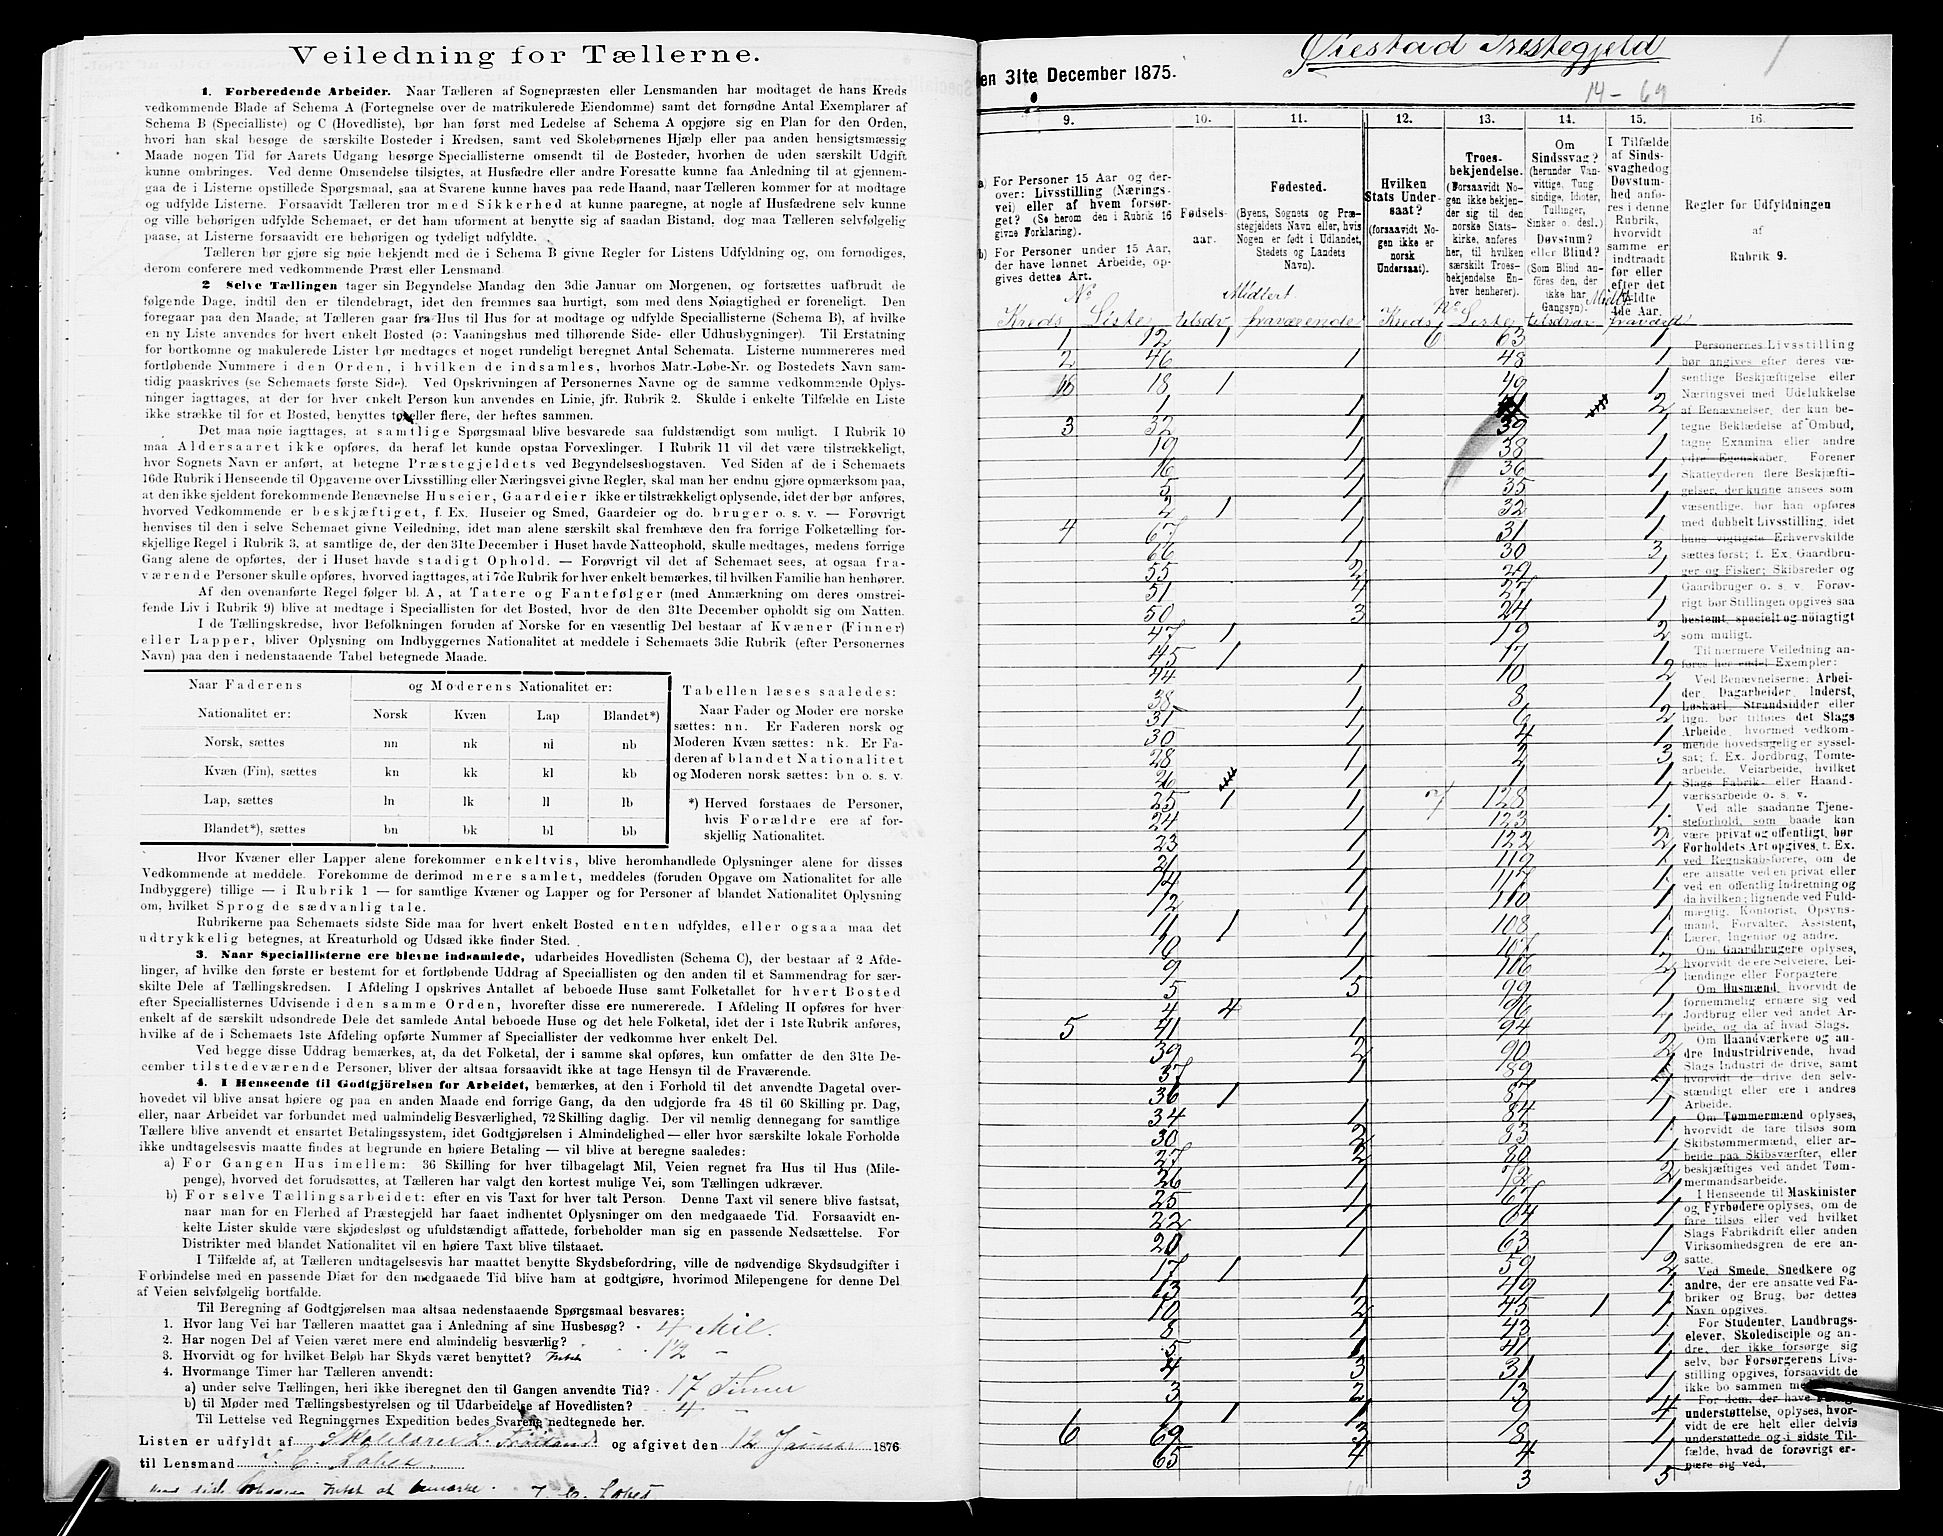 Veiledning for Tællerne.
1. Forberedende Arbeider. Naar Tælleren af Sognepræsten eller Lensmanden har modtaget de hans Kreds
vedkommende Blade af Schema A (Fortegnelse over de matrikulerede Eiendomme) samt det fornødne Antal Exemplarer af
Schema B (Specialliste) og C (Hovedliste), bør han først med Ledelse af Schema A opgjøre sig en Plan for den Orden,
hvori han skal besøge de særskilte Bosteder i Kredsen, samt ved Skolebørnenes Hjælp eller paa anden hensigtsmæssig
Maade nogen Tid før Aarets Udgang besørge Speciallisterne omsendt til de Bosteder, hvorhen de uden særskilt Udgift
kunne ombringes. Ved denne Omsendelse tilsigtes, at Husfædre eller andre Foresatte kunne faa Anledning til at gjennem-
gaa de i Listerne opstillede Spørgsmaal, saa at Svarene kunne haves paa rede Haand, naar Tælleren kommer for at modtage
og udfylde Listerne. Forsaavidt Tælleren tror med Sikkerhed at kunne paaregne, at nogle af Husfædrene selv kunne
og ville behørigen udfylde Schemaet, er det ham uforment at benytte sig af saadan Bistand, dog maa Tælleren selvfølgelig
paase, at Listerne forsaavidt ere behørigen og tydeligt udfyldte.
Tælleren bør gjøre sig nøie bekjendt med de i Schema B givne Regler for Listens Udfyldning og, om fornødiges,
derom conferere med vedkommende Præst eller Lensmand
2 Selve Tællingen tager sin Begyndelse Mandag den 3die Januar om Morgenen, og fortsættes uafbrudt de
følgende Dage, indtil den er tilendebragt, idet den fremmes saa hurtigt, som med dens Nøiagtighed er foreneligt. Den
foregaar paa den Maade, at Tælleren gaar fra Hus til Hus for at modtage og udfylde Speciallisterne (Schema B), af hvilke
en ny Liste anvendes for hvert enkelt Bosted (ɔ: Vaaningshus med tilhørende Side- eller Udhusbygninger). Til Erstatning
for bortkomne og makulerede Lister bør medtages et noget rundeligt beregnet Antal Schemata. Listerne nummereres med
fortløbende Nummere i den Orden, i hvilken de indsamles, hvorhos Matr.-Løbe-Nr. og Bostedets Navn sam-
tidig paaskrives (se Schemaets første Side). Ved Opskrivningen af Personernes Navne og de samme vedkommende Oplys-
ninger iagttages, at der for hver enkelt Person kun anvendes en Linie, jfr. Rubrik 2. Skulde i enkelte Tilfælde en Liste
ikke strække til for et Bosted, benyttes to eller flere, der heftes sammen.
Det maa nøie iagttages, at samtlige Spørgsmaal blive besvarede saa fuldstændigt som muligt. I Rubrik 10
maa Aldersaaret ikke opføres, da heraf let kunde opstaa Forvexlinger. I Rubrik 11 vil det være tilstrækkeligt,
hvor Sognets Navn er anført, at betegne Præstegjeldets ved Begyndelsesbogstaven. Ved Siden af de i Schemaets
16de Rubrik i Henseende til Opgaverne over Livsstilling eller Næringsvei givne Regler, skal man her endnu gjøre opmærksom paa,
at den ikke sjeldent forekommende Benævnelse Huseier, Gaardeier ikke er tilstrækkeligt oplysende, idet der bør anføres,
hvorved Vedkommende er beskjæftiget, f. Ex. Huseier og Smed, Gaardeier og do. bruger o. s. v. — Forøvrigt
henvises til den i selve Schemaet givne Veiledning, idet man alene særskilt skal fremhæve den fra forrige Folketælling for-
skjellige Regel i Rubrik 3, at samtlige de, der den 31te December i Huset havde Natteophold, skulle medtages, medens forrige
Gang alene de opførtes, der i Huset havde stadigt Ophold. — Forøvrigt vil det af Schemaet sees, at ogsaa fra-
værende Personer skulle opføres, hvorved iagttages, at i 7de Rubrik for hver enkelt bemærkes, til hvilken Familie han henhører.
Af den ovenanførte Regel følger bl. A, at Tatere og Fantefølger (med Anmærkning om deres omstrei-
fende Liv i Rubrik 9) blive at medtage i Speciallisten for det Bosted, hvor de den 31te December opholdt sig om Natten.
I de Tællingskredse, hvor Befolkningen foruden af Norske for en væsentlig Del bestaar af Kvæner (Finner)
eller Lapper, bliver Oplysning om Indbyggernes Nationalitet at meddele i Schemaets 3die Rubrik (efter Personernes
Navn) paa den i nedenstaaende Tabel betegnede Maade.
Naar Faderens | og Moderens Nationalitet er:
Nationalitet er: | Norsk | Kvæn | Lap | Blandet*)
Norsk, sættes | nn | nk | nl | nb
Kvæn (Fin), sættes | kn | kk | kl | kb
Lap, sættes | ln | lk | ll | lb
Blandet*), sættes | bn | bk | bl | bb
Tabellen læses saaledes:
Naar Fader og Moder ere norske
sættes: nn. Er Faderen norsk og
Moderen Kvæn sættes: nk. Er Fa-
deren af blandet Nationalitet
og Moderen norsk sættes: bn o. s. v.
*) Herved forstaaes de Personer,
hvis Forældre ere af for-
skjellig Nationalitet.
Hvor Kvæner eller Lapper alene forekommer enkeltvis, blive heromhandlede Oplysninger alene for disses
Vedkommende at meddele. Forekomme de derimod mere samlet, meddeles (foruden Opgave om Nationalitet for alle
Indbyggere) tillige — i Rubrik 1 — for samtlige Kvæner og Lapper og for Personer af blandet Nationalitet Oplysning
om, hvilket Sprog de sædvanlig tale.
Rubrikerne paa Schemaets sidste Side maa for hvert enkelt Bosted enten udfyldes, eller ogsaa maa det
udtrykkelig betegnes, at Kreaturhold og Udsæd ikke finder Sted.
3. Naar Speciallisterne ere blevne indsamlede, udarbeides Hovedlisten (Schema C), der bestaar af 2 Afde-
linger, af hvilke den første er bestemt for et fortløbende Uddrag af Speciallisten og den anden til et Sammendrag for sær-
skilte Dele af Tællingskredsen. I Afdeling I opskrives Antallet af beboede Huse samt Folketallet for hvert Bosted
efter Speciallisternes Udvisende i den samme Orden, hvorefter disse ere nummererede. I Afdeling II opføres for hver
enkelt af de særskilt udsondrede Dele det samlede Antal beboede Huse og det hele Folketal, idet der i 1ste Rubrik anføres,
hvilke af de i Schemaets 1ste Afdeling opførte Nummer af Speciallister der vedkomme hver enkelt Del.
Ved begge disse Uddrag bemærkes, at, da det Folketal, der i samme skal opføres, kun omfatter de den 31te De-
cember tilstedeværende Personer, bliver der altsaa forsaavidt ikke at tage Hensyn til de Fraværende.
4. I Henseende til Godtgjörelsen for Arbeidet, bemærkes, at den i Forhold til det anvendte Dagetal over-
hovedet vil blive ansat høiere og paa en anden Maade end forrige Gang, da den udgjorde fra 48 til 60 Skilling pr. Dag,
eller, naar Arbeidet var forbundet med ualmindelig Besværlighed, 72 Skilling daglig. Der vil nemlig dennegang for samtlige
Tællere blive anvendt et ensartet Betalingssystem, idet Godtgjørelsen i Almindelighed — eller hvor særskilte lokale Forholde
ikke undtagelsesvis maatte findes at begrunde en høiere Betaling — vil blive at beregne saaledes:
a) For Gangen Hus imellem: 36 Skilling for hver tilbagelagt Mil, Veien regnet fra Hus til Hus (Mile-
penge), hvorved det forudsættes, at Tælleren har valgt den kortest mulige Vei, som Tællingen udkræver.
b) For selve Tællingsarbeidet: efter en vis Taxt for hver talt Person. Denne Taxt vil senere blive fastsat,
naar man for en Flerhed af Præstegjeld har faaet indhentet Oplysninger om den medgaaede Tid. Forsaavidt en-
kelte Lister skulde være skjødesløst og ufuldstændigt affattede, forbeholder man sig en passende Nedsættelse. For
Distrikter med blandet Nationalitet vil en høiere Taxt blive tilstaaet.
I Tilfælde af, at Tælleren undtagelsesvis har maattet benytte Skydsbefordring, ville de nødvendige Skydsudgifter i
Forbindelse med en passende Diæt for den medgaaede Tid blive ham at godtgjøre, hvorimod Milepengene for denne Del
af Veien selvfølgelig bortfalde.
Til Beregning af Godtgjørelsen maa altsaa nedenstaaende Spørgsmaal besvares:
1. Hvor lang Vei har Tælleren maattet gaa i Anledning af sine Husbesøg? 4 Mil.
2. Har nogen Del af Veien været mere end almindelig besværlig?
3. Hvorvidt og for hvilket Beløb har Skyds været benyttet?
4. Hvormange Timer har Tælleren anvendt:
a) under selve Tællingen, heri ikke iberegnet den til Gangen anvendte Tid? 17 Timer
b) til Møder med Tællingsbestyrelsen og til Udarbeidelse af Hovedlisten? 4 -
Til Lettelse ved Regningernes Expedition bedes Svarene nedtegnede her.
Listen er udfyldt af og afgivet den 12 Januar 1876
til Lensmand
Øiestad Prestegjeld
en 31te December 1875.
14 - 69
9. 10. 11. 12. 13. 14. 15. 16.
a) For Personer 15 Aar og der-
over: Livsstilling (Nærings-
vei) eller af hvem forsør-
get? (Se herom den i Rubrik 16
givne Forklaring).
b) For Personer under 15 Aar,
der have lønnet Arbeide, op-
gives dettes Art.
Fødsels-
aar.
Fødested.
(Byens, Sognets og Præ-
stegjeldets Navn eller, hvis
Nogen er født i Udlandet,
Stedets og Landets
Navn).
Hvilken
Stats Under-
saat?
(forsaavidt No-
gen ikke er
norsk
Undersaat).
Troes-
bekjendelse.
(Forsaavidt No-
gen ikke bekjen-
der sig til den
norske Stats-
kirke, anføres
her, til hvilken
særskilt Troes-
bekjendelse En-
hver henhører).
Om
Sindssvag?
(herunder Van-
vittige, Tung
sindige, Idioter,
Tullinger,
Sinker o. desl.)
Døvstum?
eller Blind?
(Som Blind an-
føres den, der
ikke har
Gangsyn).
I Tilfælde
af Sinds-
svaghed og
Døvstum-
hed anfø-
res i denne
Rubrik,
hvorvidt
samme er
indtraadt
før eller
efter det
fyldte
4de Aar.
Regler for Udfyldningen
af
Rubrik 9.
No Midtert. No Midt.
Kreds Liste tilsdv fraværende Kreds Liste tilsdvær fraværd
1 12 1 6 63 1
2 46 1 48 1
18 1 49 1
1 1 2
3 32 1 39 1
19 1 38 1
16 1 36 1
5 1 35 1
2 1 1 32 1
4 67 1 31 1
66 1 30 3
55 2 29 1
51 4 27 1
50 3 24 1
47 1 19 2
45 1 17 1
44 1 10 2
38 1 8 1
31 1 6 2
30 1 4 1
28 1 2 3
26 1 1 1
25 1 1 7 128 1
24 1 123 1
23 1 122 2
21 1 119 1
14 1 117 1
12 1 110 1
11 1 1 108 1
10 1 107 1
9 1 106 2
5 5 99 1
4 4 96 1
5 41 1 94 1
39 2 90 2
37 1 89 1
36 1 87 1
34 1 84 1
30 2 83 1
27 2 80 1
26 1 72 2
25 1 67 1
22 1 64 1
20 1 63 1
17 1 59 2
13 1 49 1
10 2 45 1 1
8 1 43 1
5 1 41 1
4 3 31 1
3 2 13 1
1 1 1 9 4
6 69 3 8 1
65 4 4 1
3 5
Personernes Livsstilling
bør angives efter deres væ-
sentlige Beskjæftigelse eller
Næringsvei med Udelukkelse
af Benævnelser, der kun be-
tegne Beklædelse af Ombud,
tagne Examina eller andre
ydre Egenskaber. Forener
Skatteyderen flere Beskjæfti-
gelser, der kunne ansees som
væsentlige, bør han opføres
med dobbelt Livsstilling, idet
hans vigtigste Erhvervskilde
sættes først; f. Ex. Gaardbru-
ger og Fisker; Skibsreder og
Gaardbruger o. s. v. Forøv-
rigt bør Stillingen opgives saa
bestemt, specielt og nöiagtigt
som muligt.
Til nærmere Veiledning an-
føres her endel Exempler:
Ved Benævnelserne: Arbei-
der, Dagarbeider, Inderst,
Løskarl, Strandsidder eller
lign. bør tilføres det Slags
Arbeide, hvormed vedkom-
mende hovedsagelig er syssel-
sat; f. Ex. Jordbrug, Tomte-
arbeide, Veiarbeide, hvilket
Slags Fabrik- eller Haand-
værksarbeide o. s. v.
Ved alle saadanne Tjene-
steforhold, som baade kan
være privat og offentligt, bør
Forholdets Art opgives, t. Ex.
ved Regnskabsførere, om de
ere ansatte ved en privat eller
ved en offentlig Indretning og
da hvilken; lignende ved Fuld-
mægtig, Kontorist, Opsyns-
mand, Forvalter, Assistent,
Lærer, Ingeniør og andre.
Om Gaardbrugere oplyses,
hvorvidt de ere Selveiere, Lei-
lændinge eller Forpagtere
Om Husmænd, hvorvidt de
fornemmelig ernære sig ved
Jordbrug eller ved andet Ar-
beide, og da af hvad Slags.
Om Haandværkere og an-
dre Industridrivende, hvad
Slags Industri de drive, samt
hvorvidt de drive den selv-
stændigt eller ere i andres
Arbeide.
Om Tømmermænd oplyses,
hvorvidt de fare tilsøs som
Skibstømmermænd, eller ar-
beide paa Skibsværfter, eller
beskjæftiges ved andet Tøm-
mermandsarbeide.
I Henseende til Maskinister
og Fyrbødere oplyses, om de
fare tilsøs eller ved hvilket
Slags Fabrikdrift eller anden
Virksomhedsgren de ere an-
satte.
Ved Smede, Snedkere og
andre, der ere ansatte ved Fa-
briker og Brug, bør dettes
Navn opgives.
For Studenter, Landbrugs-
elever, Skoledisciple og an-
dre, der ikke forsørge sig
selv, bør Forsørgerens Livs-
stilling opgives, forsaavidt de
ikke bo sammen med
For dem, der have
understøttelse, oplyses, hvor-
vidt de ere helt eller delvis
understøttede og i sidste Til-
fælde, hvad de forøvrigt er-
nære sig ved.